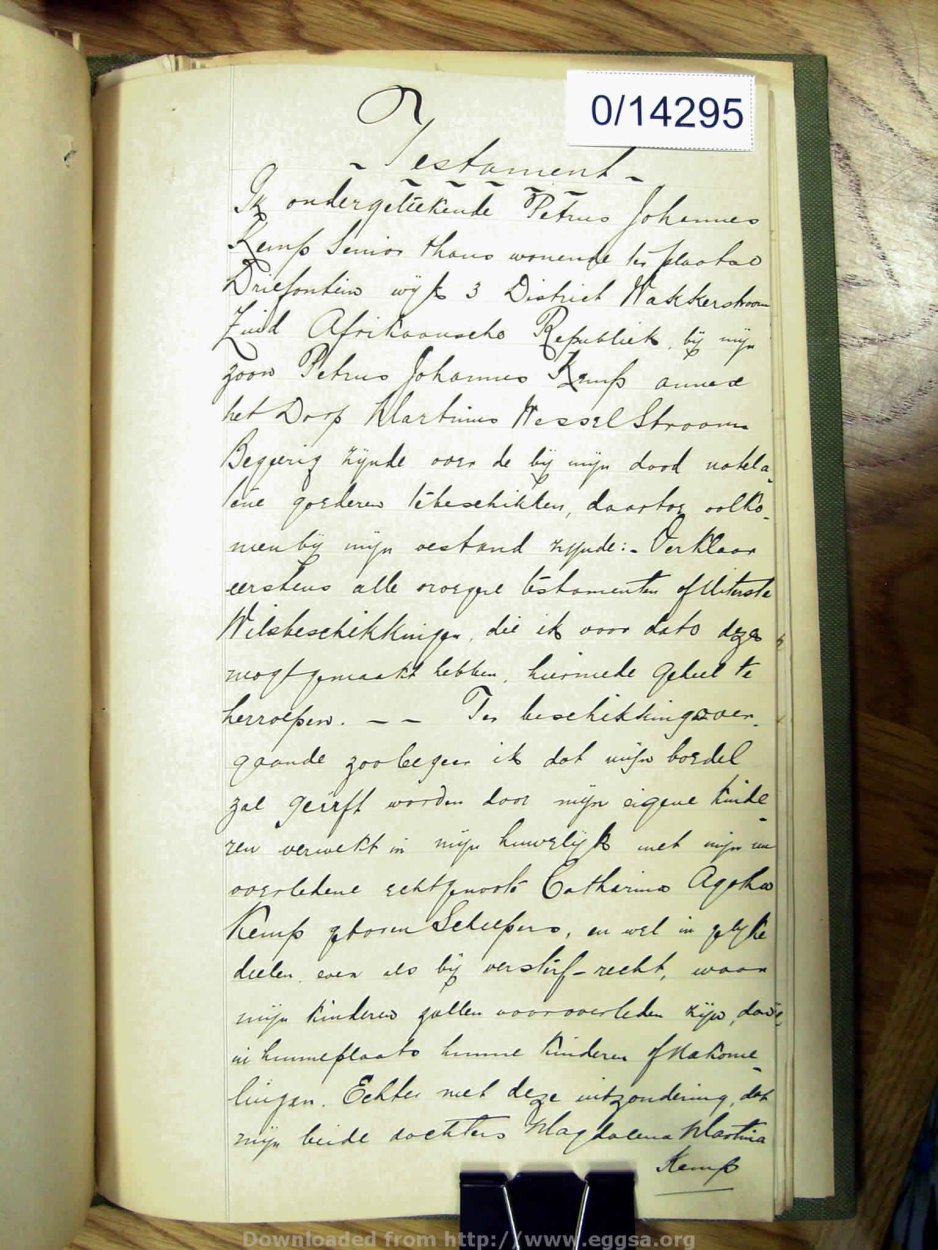 0/14295
Testament
Ik ondergeteekende Petrus Johannes
Kemp Senior thans wonende ter plaatse
Driefontein wijk 3 District Wakkerstroom
Zuid Afrikaansche Republiek, bij mijn
zoon Petrus Johannes Kemp annex
het Dorp Martinus Wessel Stroom
Begeerig zijnde over de bij mijn dood natela-
tene goederen tebeschikken, daartoe volko-
men bij mijn verstand zijnde:- Verklaar
eerstens alle vroegere testamenten of Uiterste
Wilsbeschikkingen, die ik voor dato dezes
mogt gemaakt hebben, hiermede geheel te
herroepen. — — Ter beschikking over-
gaande zoo begeer ik dat mijn boedel
zal geërft worden door mijn eigene kinde-
ren verwekt in mijn huwelijk met mijn nu
overledene echtgenoote Catharina Agatha
Kemp geboren Scheepers, en wel in gelijke
deelen even als bij versterf-recht, waar
mijn kinderen zullen vooroverleden zijn,
in hunne plaats hunne kinderen of Nakome-
lingen. Echter met deze uitzondering, dat
mijn beide dochters Magdalena Martina
Kemp
Downloaded from http://www.eggsa.org